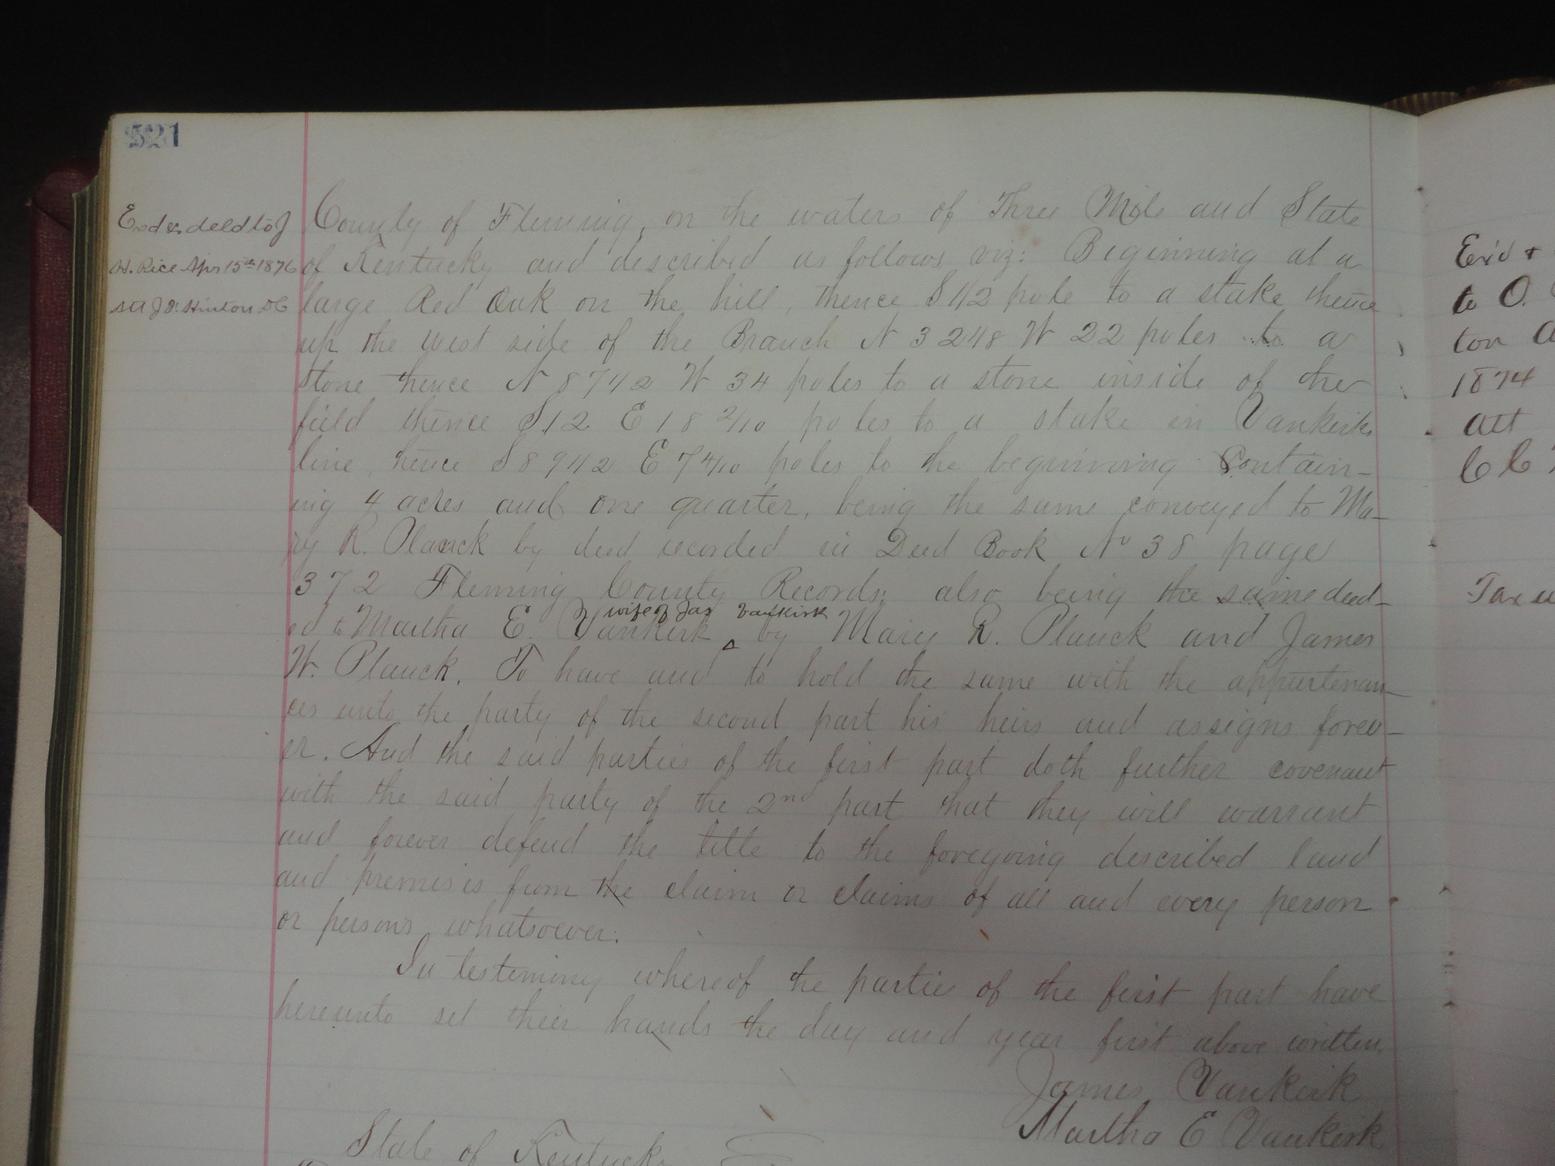 521
Exd & deld to J
H. Rice Apr 15th 1876
Att J. D. Hinton DC
County of Fleming, on the waters of Three Mile and State
of Kentucky and described as follows viz: Beginning at a
large Red Oak on the hill, thence S 1/2 pole to a stake thence
up the west side of the Branch N 3 248 W 22 poles to a
stone thence N 87 1/2 W 34 poles to a stone inside of the
field thence S 12 E 18 2/10 poles to a stake in Vankirks
line, thence S 89 1/2 E 7 4/10 poles to the beginning Contain-
ing 4 acres and one quarter, being the same conveyed to Ma-
ry R. Planck by deed recorded in Deed Book No 38 page
372 Fleming County Records; also being the same deed-
wife of Jas Vankirk
ed to Martha E. Vankirk by Mary R. Planck and James
W. Planck. To have and to hold the same with the appurtenan-
ces unto the party of the second part his heirs and assigns forev-
er. And the said parties of the first part doth further covenant
with the said party of the 2nd part that they will warrant
and forever defend the title to the foregoing described land
and premises from the claim or claims of all and every person
or persons whatsoever.
In testimony whereof the parties of the first part have
hereunto set their hands the day and year first above written.
James Vankirk
Martha E Vankirk
State of Kentucky
Exd +
to O.
ton
1874
Att